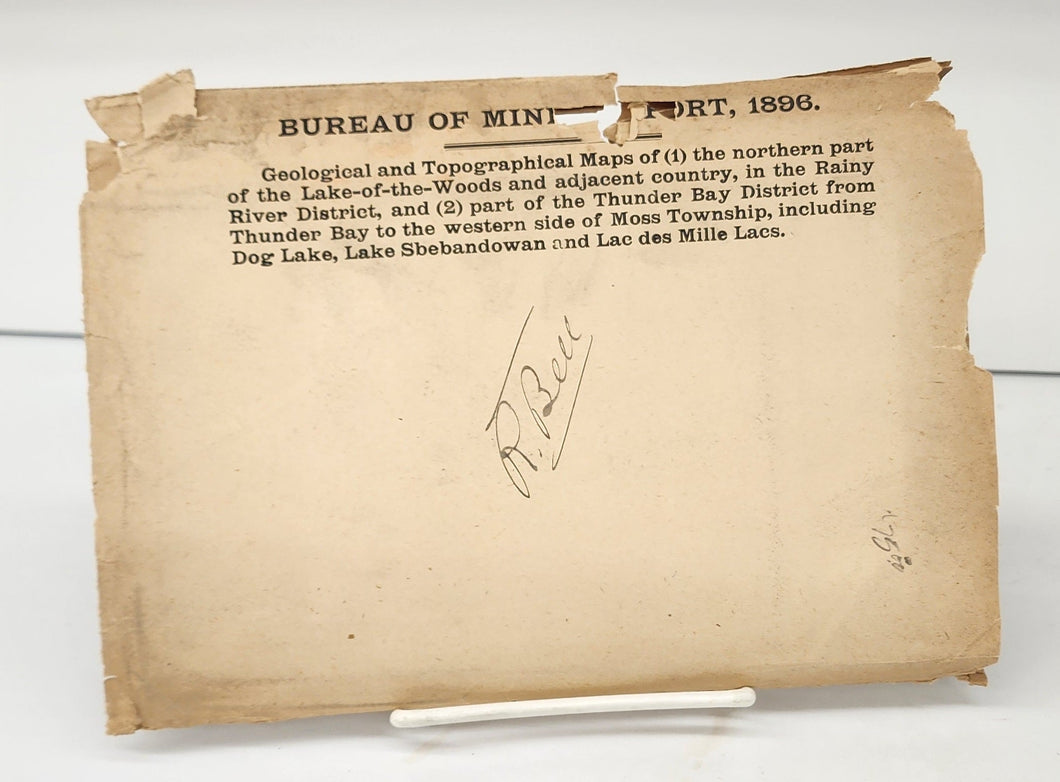 BUREAU OF MIN RT, 1896.
Geological and Topographical Maps of (1) the northern part
of the Lake-of-the-Woods and adjacent country, in the Rainy
River District, and (2) part of the Thunder Bay District from
Thunder Bay to the western side of Moss Township, including
Dog Lake, Lake Sbebandowan and Lac des Mille Lacs.
R. Bell